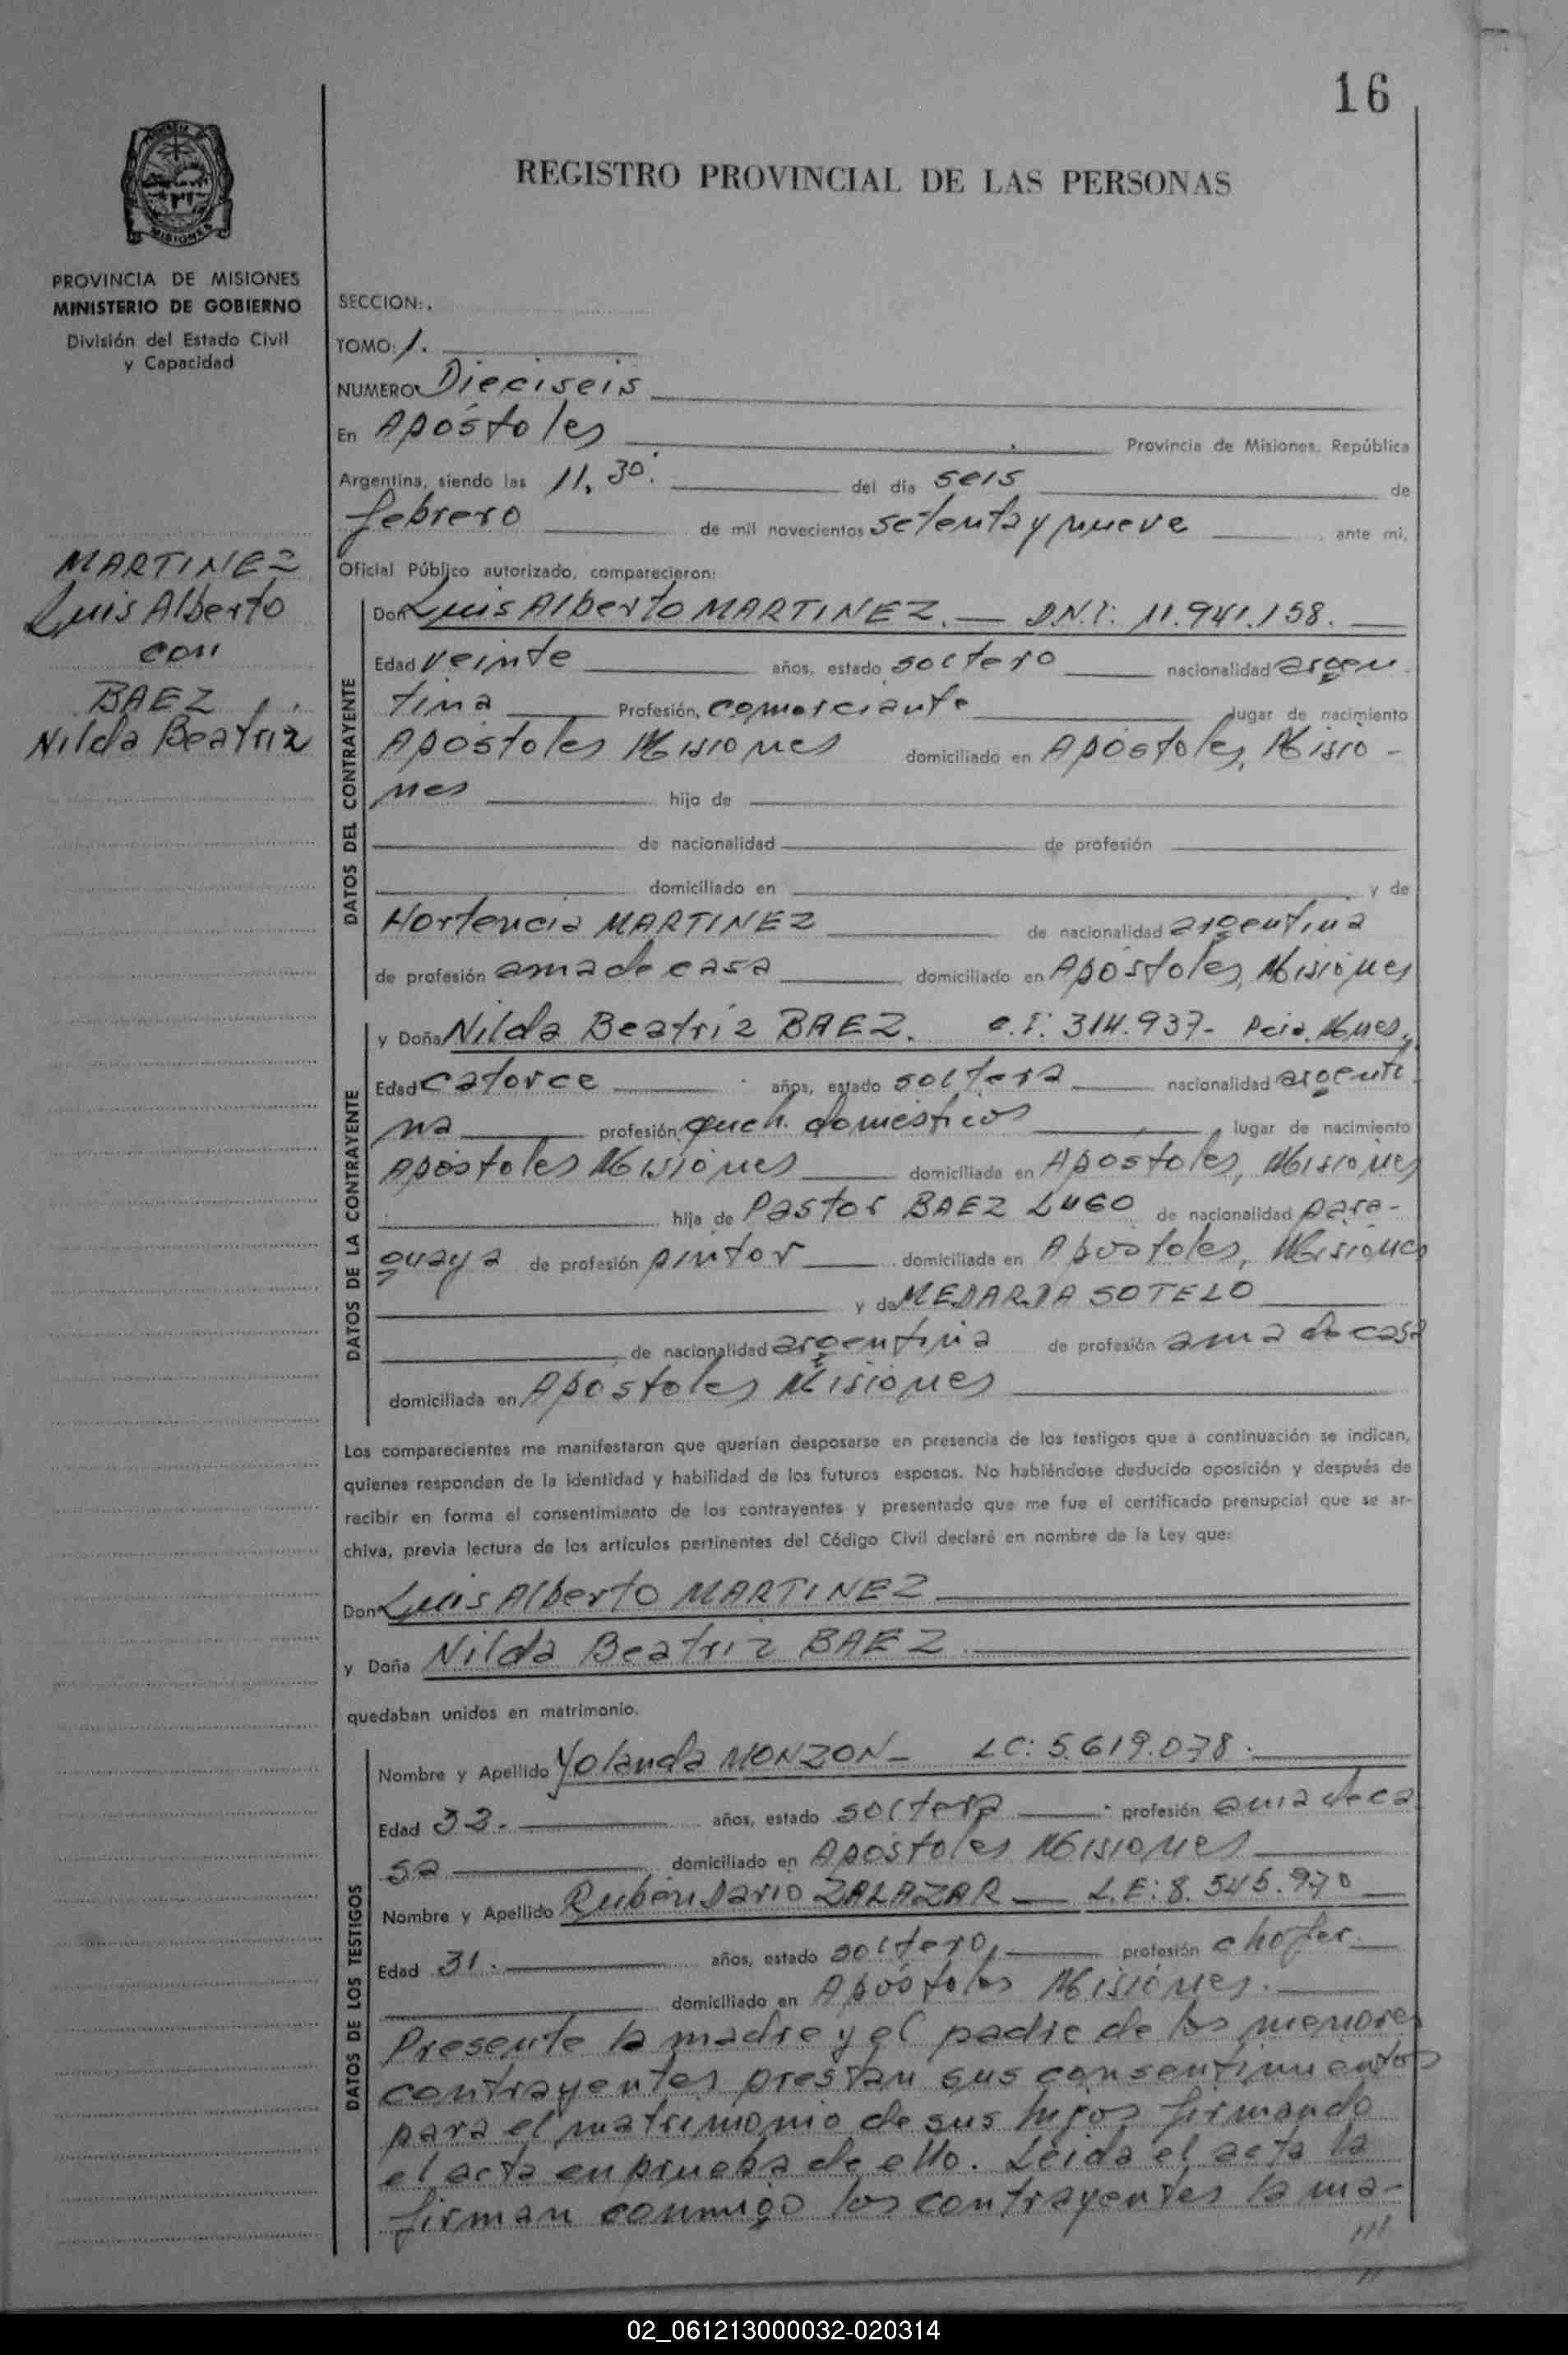 16
REGISTRO PROVINCIAL DE LAS PERSONAS
MISIONES
PROVINCIA DE MISIONES
MINISTERIO DE GOBIERNO
División del Estado Civil
y Capacidad
MARTINEZ
Luis Alberto
con
BAEZ
Nilda Beatriz
SECCION:
TOMO: 1.
NUMERO Dieciseis
En Apóstoles Provincia de Misiones, República
Argentina, siendo las 11,30. del día seis de
febrero de mil novecientos setenta y nueve ante mi,
Oficial Público autorizado, comparecieron:
DATOS DEL CONTRAYENTE
Don Luis Alberto MARTINEZ.— D.N.I: 11.941.158.
Edad veinte años, estado soltero nacionalidad argen
tina Profesión, comerciante lugar de nacimiento
Apóstoles Misiones domiciliado en Apóstoles, Misio-
nes hijo de
de nacionalidad de profesión
domiciliado en y de
Hortencia MARTINEZ de nacionalidad argentina
de profesión ama de casa domiciliado en Apóstoles, Misiones
DATOS DE LA CONTRAYENTE
y Doña Nilda Beatriz BAEZ. C.I: 314.937- Pcia. Mnes.
Edad catorce años, estado soltera nacionalidad argenti
na profesión queh. domésticos lugar de nacimiento
Apóstoles Misiones domiciliada en Apóstoles, Misiones
hija de Pastor BAEZ LUGO de nacionalidad para-
guaya de profesión pintor domiciliada en Apóstoles, Misiones
y de MEDARDA SOTELO
de nacionalidad argentina de profesión ama de casa
domiciliada en Apóstoles Misiones
Los comparecientes me manifestaron que querían desposarse en presencia de los testigos que a continuación se indican,
quienes responden de la identidad y habilidad de los futuros esposos. No habiéndose deducido oposición y después de
recibir en forma el consentimiento de los contrayentes y presentado que me fue el certificado prenupcial que se ar-
chiva, previa lectura de los artículos pertinentes del Código Civil declaré en nombre de la Ley que:
Don Luis Alberto MARTINEZ
y Doña Nilda Beatriz BAEZ
quedaban unidos en matrimonio.
DATOS DE LOS TESTIGOS
Nombre y Apellido Yolanda MONZON- LC: 5.619.078.
Edad 33. años, estado soltera profesión ama de ca
sa domiciliado en Apóstoles Misiones
Nombre y Apellido Rubén Dario ZALAZAR — L.E: 8.545.970
Edad 31. años, estado soltero, profesión chofer
domiciliado en Apóstoles Misiones.
Presente la madre y el padre de los menores
contrayentes prestan sus consentimientos
para el matrimonio de sus hijos firmando
el acta en prueba de ello. Leida el acta la
firman conmigo los contrayentes la ma-
///
02_061213000032-020314